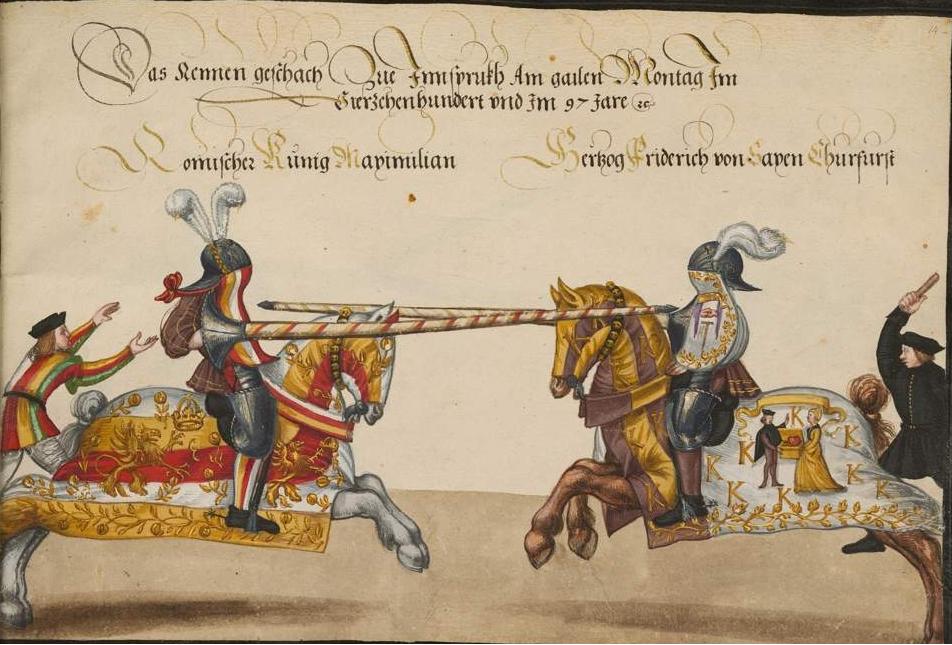 Das Rennen geschach Zue Innsprukh Am gailen Montag Im
Vierzehenhundert vnd Im 97 Jare ꝛc
Romischer Künig Maximilian
Hertzog Friderich von Saxen Churfürst
K K K K K K K K K